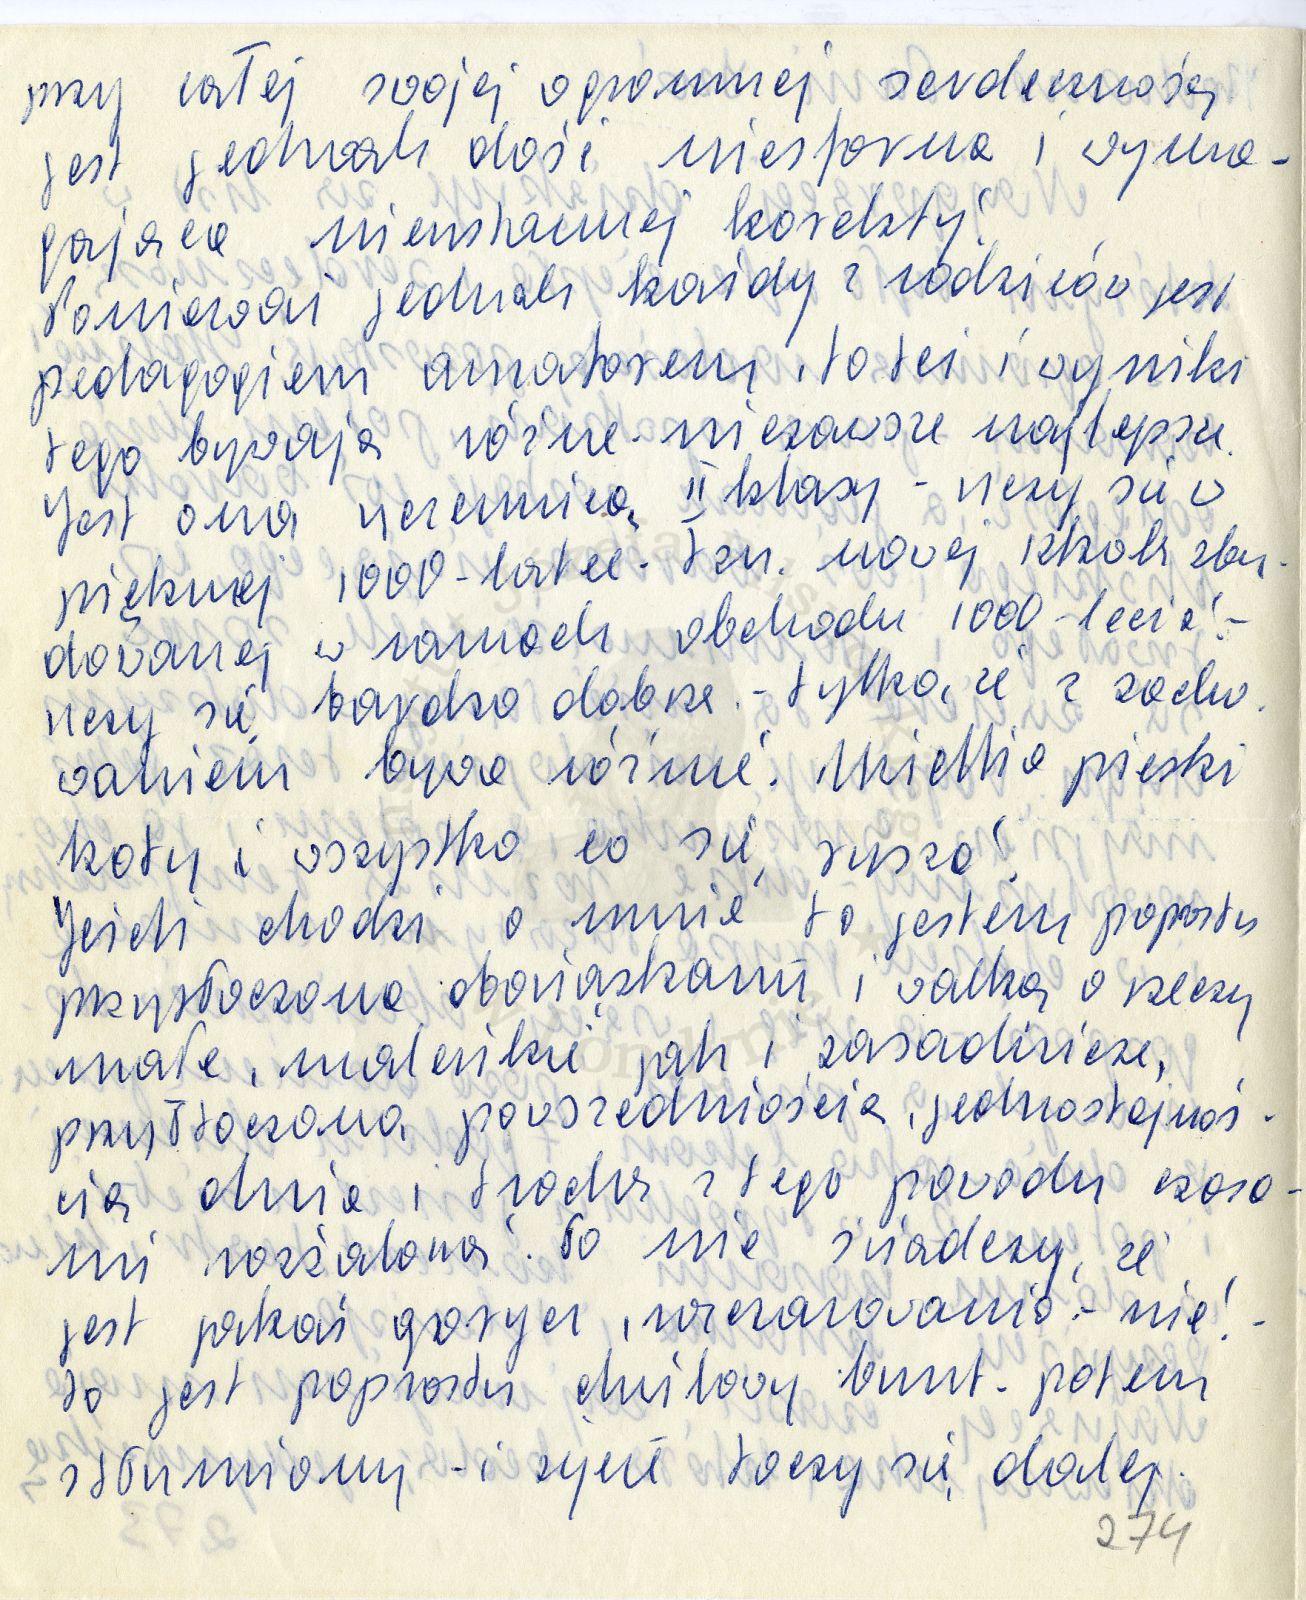 przy całej swojej ogromnej serdecznością
jest jednak dość niesforna i wyma-
gająca nieustannej korekty!
Ponieważ jednak każdy z rodziców jest
pedagogiem amatorem, toteż i wyniki
tego bywają różne - niezawsze najlepsze.
Jest ona uczennicą II klasy - uczy się w
pięknej 1000-latce - tzn. nowej szkole zbu-
dowanej w ramach obchodu 1000-lecia! -
uczy się bardzo dobrze - tylko, że z zacho-
waniem bywa różnie. Uwielbia pieski
koty i wszystko co się rusza!
Jeżeli chodzi o mnie to jestem poprostu
przytłoczona obowiązkami i walką o rzeczy
małe, maleńkie jak i zasadnicze,
przytłoczona powszedniością, jednostajnoś-
cią dnia i trochę z tego powodu czasa-
mi rozżalona. To nie świadczy, że
jest jakaś gorycz, rozczarowanie - nie! -
to jest poprostu chwilowy bunt - potem
stłumiony - i życie toczy się dalej.
274